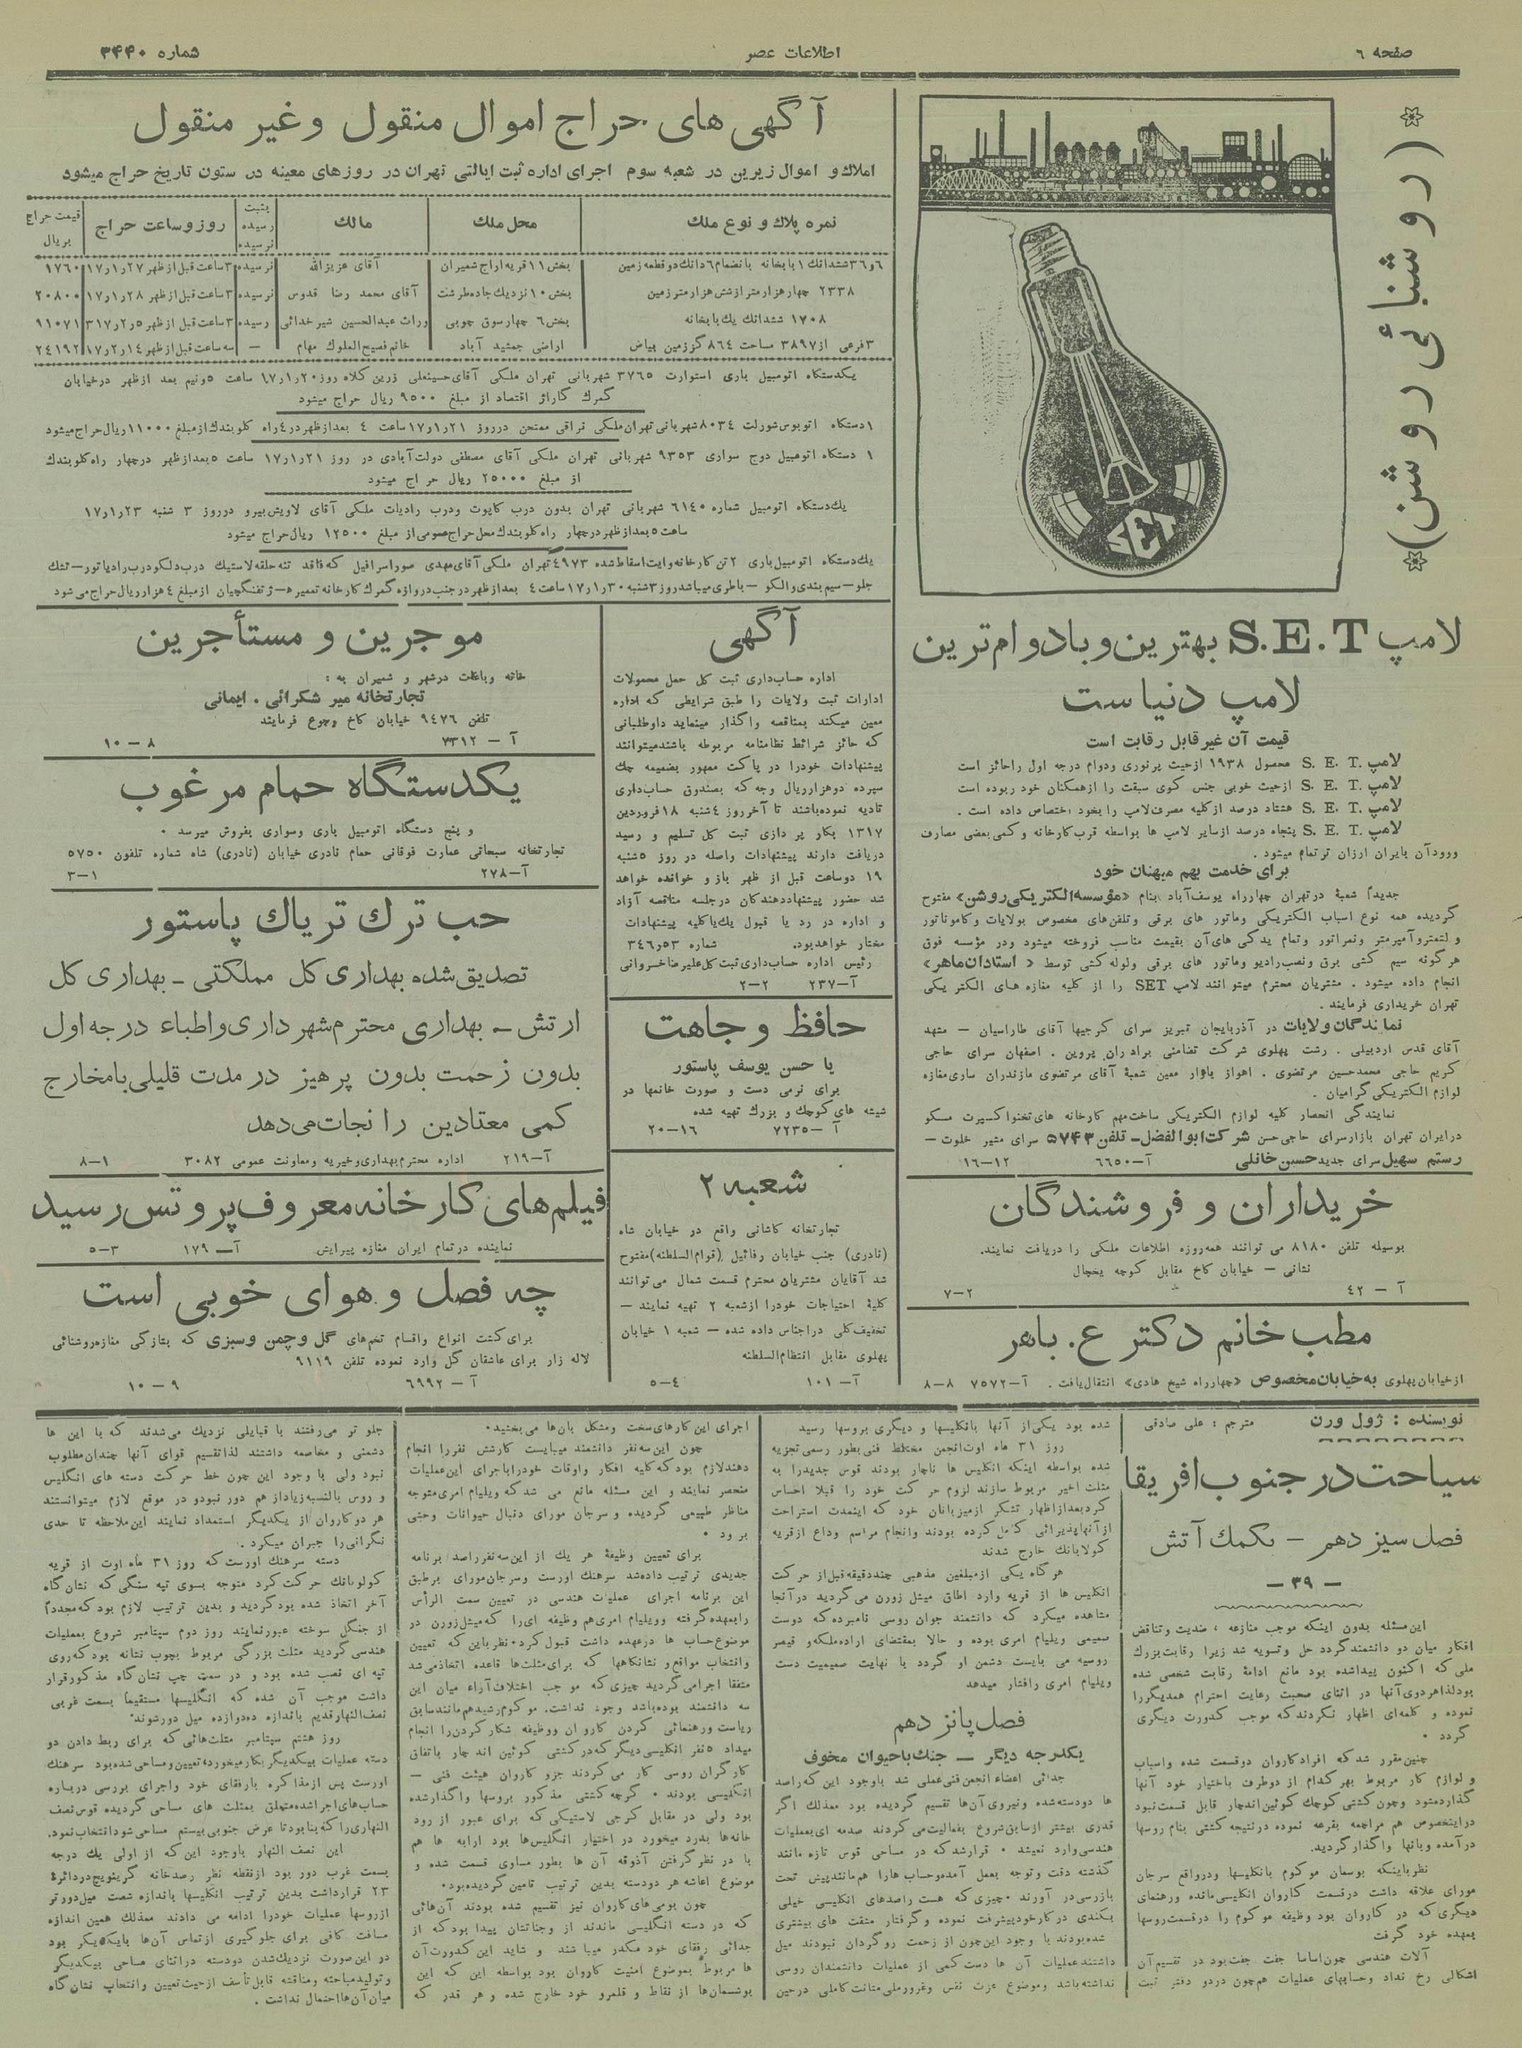 صفحه ٦
اطلاعات عصر
شماره ۳۴۴۰
(روشنائی روشن)
لامپ S.E.T بهترین و بادوام‌ترین
لامپ دنیاست
قیمت آن غیرقابل رقابت است
لامپ .S. E. T محصول ۱۹۳۸ ازحیث پرنوری ودوام درجه اول راحائز است
لامپ .S. E. T ازحیث خوبی جنس گوی سبقت را ازهمکنان خود ربوده است
لامپ .S. E. T هشتاد درصد ازکلیه مصرف‌لامپ را بخود اختصاص داده است .
لامپ .S. E. T پنجاه درصد ازسایر لامپ ها بواسطه قرب کارخانه و کمی بعضی مصارف
ورودآن بایران ارزان تر تمام میشود .
برای خدمت بهم میهنان خود
جدیداً شعبهٔ درتهران چهارراه یوسف‌آباد بنام «مؤسسه‌الکتریکی‌روشن» مفتوح
گردیده همه نوع اسباب الکتریکی وماتور های برقی وتلفن‌های مخصوص بولایات وکاموتاتور
ولتمتروآمپرمتر ونمراتور وتمام یدکی های‌آن بقیمت مناسب فروخته میشود ودر مؤسسه فوق
هرگونه سیم کشی برق ونصب‌رادیو وماتور های برقی ولوله‌کشی توسط « استادان‌ماهر»
انجام داده میشود . مشتریان محترم میتوانند لامپ SET را از کلیه مغازه های الکتریکی
تهران خریداری فرمایند .
نمایندگان‌ولایات در آذربایجان تبریز سرای گرجیها آقای طاراسیان – مشهد
آقای قدس اردبیلی . رشت پهلوی شرکت تضامنی برادران پروین . اصفهان سرای حاجی
کریم حاجی محمدحسین مرتضوی . اهواز بازار معین شعبهٔ آقای مرتضوی مازندران ساری‌مغازه
لوازم الکتریکی گرامیان .
نمایندگی انحصار کلیه لوازم الکتریکی ساخت‌مهم کارخانه های‌تخنواکسپرت مسکو
درایران تهران بازارسرای حاجی‌حسن شرکت‌ابوالفضل– تلفن ۵۷۴۳ سرای مشیر خلوت –
رستم سهیل سرای جدید حسن‌خانلی آ–٦٦٥٠ ۱۲–۱٦
خریداران و فروشندگان
بوسیله تلفن ۸۱۸۰ می توانند همه‌روزه اطلاعات ملکی را دریافت نمایند.
نشانی – خیابان کاخ مقابل کوچه یخچال
آ – ۴۲ ۲–۷
مطب خانم دکتر ع. باهر
ازخیابان‌پهلوی به‌خیابان‌مخصوص «چهارراه شیخ هادی» انتقال‌یافت . آ–۷۵۷۲ ۸–۸
آگهی های حراج اموال منقول و غیر منقول
املاك و اموال زیرین در شعبه سوم اجرای اداره ثبت ایالتی تهران در روزهای معینه در ستون تاریخ حراج میشود
نمره پلاك و نوع ملك | محل ملك | مالك | بثبت رسیده نرسیده | روز و ساعت حراج | قیمت حراج بریال
٦و۳٦ششدانك ۱ بابخانه بانضمام٦دانك‌دوقطعه‌زمین | بخش ۱۱ قریه اراج شمیران | آقای عزیزالله | نرسیده | ۳ساعت قبل‌ازظهر ۱۷ر۱ر۲۷ | ۱۷٦۰
۲۳۳۸ چهارهزارمتر‌ازشش‌هزارمترزمین | بخش ۱۰ نزدیك جاده‌طرشت | آقای محمد رضا قدوس | نرسیده | ۳ساعت قبل‌ازظهر ۱۷ر۱ر۲۸ | ۲۰۸۰۰
۱۷۰۸ ششدانك یك‌بابخانه | بخش ٦ چهارسوق چوبی | وراث عبدالحسین شیرخدائی | رسیده | ۳ساعت قبل‌ازظهر ۵ر۲ر۳۱۷ | ۹۱۰۷۱
۳فرعی از۳۸۹۷ مساحت ۸٦۴ گززمین بیاض | اراضی جمشید آباد | خانم فصیح‌الملوك مهام | – | سه‌ساعت قبل‌ازظهر ۱۷ر۲ر۱۴ | ۲۴۱۹۲
یکدستگاه اتومبیل باری استوارت ۳۷٦٥ شهربانی تهران ملکی آقای‌حسینعلی زرین کلاه روز ۱۷ر۱ر۲۰ ساعت ٥ونیم بعد ازظهر درخیابان
گمرك گاراژ اقتصاد از مبلغ ۹۵۰۰ ریال حراج میشود
۱ دستگاه اتوبوس‌شورلت ۸۰۳۴شهربانی تهران‌ملکی نراقی ممتحن درروز ۱۷ر۱ر۲۱ ساعت ۴ بعدازظهر در۴راه گلوبندك‌ازمبلغ ۱۱۰۰۰ریال‌حراج‌میشود
۱ دستگاه اتومبیل دوج سواری ۹۳۵۳ شهربانی تهران ملکی آقای مصطفی دولت‌آبادی در روز ۱۷ر۱ر۲۱ ساعت ۵بعدازظهر درچهار راه‌گلوبندك
از مبلغ ۲۵۰۰۰ ریال حراج میشود
یك‌دستگاه اتومبیل شماره ٦۱۴۰ شهربانی تهران بدون درب کاپوت ودرب رادیات ملکی آقای لاویش‌پیرو درروز ۳ شنبه ۱۷ر۱ر۲۳
ساعت ۵ بعدازظهر درچهار راه‌گلوبندك محل‌حراج‌عمومی‌از مبلغ ۱۲۵۰۰ ریال‌حراج میشود
یك‌دستگاه اتومبیل‌باری ۲تن‌کارخانه‌وایت‌اسقاط‌شده ۴۹۷۳تهران ملکی‌آقای‌مهدی صوراسرافیل که‌فاقد تنه‌حلقه‌لاستیك درب‌دلکودرب‌رادیاتور–تشك
جلو–سیم‌بندی‌والکو – باطری‌میباشدروز ۳شنبه ۱۷ر۱ر۳۰ساعت ۴ بعدازظهر درجنب‌دروازه‌گمرك‌کارخانه تعمیره–ژتفنگچیان ازمبلغ ۴هزارریال‌حراج‌می‌شود
آگهی
اداره حساب‌داری ثبت کل حمل محمولات
ادارات ثبت ولایات را طبق شرایطی که اداره
معین میکند بمناقصه واگذار مینماید داوطلبانی
که حائز شرائط نظامنامه مربوطه باشندمیتوانند
پیشنهادات خودرا در پاکت ممهور بضمیمه چك
سپرده دوهزارریال وجه که بصندوق حساب‌داری
تادیه نموده‌باشند تاآخرروز ۴شنبه ۱۸فروردین
۱۳۱۷ بکار پردازی ثبت کل تسلیم و رسید
دریافت دارند پیشنهادات واصله در روز ۵شنبه
۱۹ دوساعت قبل از ظهر باز و خوانده خواهد
شد حضور پیشنهاددهندگان درجلسه مناقصه آزاد
و اداره در رد یا قبول یك‌یاکلیه پیشنهادات
مختار خواهدبود. شماره ۵۳ر۳۴٦
رئیس اداره حساب‌داری ثبت کل‌علیرضاخسروانی
آ–۲۳۷ ۲–۲
حافظ وجاهت
یا حسن یوسف پاستور
برای نرمی دست و صورت خانمها در
شیشه های‌کوچك و بزرك تهیه شده
آ –۷۲۳۵ ۱٦–۲۰
شعبه ۲
تجارتخانه کاشانی واقع دو خیابان شاه
(نادری) جنب خیابان رفائیل (قوام‌السلطنه)مفتوح
شد آقایان مشتریان محترم قسمت شمال می‌توانند
کلیهٔ احتیاجات خودرا ازشعبه ۲ تهیه نمایند –
تخفیف‌کلی دراجناس داده شده – شعبه ۱ خیابان
پهلوی مقابل انتظام‌السلطنه
آ– ۱۰۱ ۴–۵
موجرین و مستأجرین
خانه وباغات درشهر و شمیران به :
تجارتخانه میر شکرائی . ایمانی
تلفن ۹۴۷٦ خیابان کاخ رجوع فرمایند
آ – ۷۳۱۲ ۸ –۱۰
یکدستگاه حمام مرغوب
و پنج دستگاه اتومبیل باری وسواری بفروش میرسد .
تجارتخانه سبحانی عمارت فوقانی حمام نادری خیابان (نادری) شاه شماره تلفون ۵۷۵۰
آ–۲۷۸ ۱–۳
حب ترك تریاك پاستور
تصدیق‌شده بهداری‌کل مملکتی – بهداری‌کل
ارتش – بهداری محترم‌شهرداری‌واطباء درجه‌اول
بدون زحمت بدون پرهیز درمدت قلیلی‌بامخارج
کمی معتادین را نجات‌می‌دهد
آ–۲۱۹ اداره محترم‌بهداری‌وخیریه ومعاونت عمومی ۳۰۸۲ ۱–۸
فیلم‌های کارخانه معروف پروتس رسید
نماینده درتمام ایران مغازه پیرایش. آ– ۱۷۹ ۳–۵
چه فصل و هوای خوبی است
برای‌کشت انواع واقسام تخم‌های گل وچمن وسبزی که بتازگی مغازه‌روشنائی
لاله زار برای‌عاشقان گل وارد نموده تلفن ۹۱۱۹
آ – ٦۹۹۲ ۹ – ۱۰
نویسنده : ژول ورن مترجم : علی صادقی
سیاحت در جنوب افریقا
فصل سیزدهم – بکمك آتش
– ۳۹ –
این‌مسئله بدون اینکه موجب منازعه ، ضدیت وتناقض
افکار میان دو دانشمندگردد حل وتسویه شد زیرا رقابت‌بزرك
ملی که اکنون پیداشده بود مانع ادامهٔ رقابت شخصی شده
بودلذاهردوی‌آنها در اثنای صحبت رعایت احترام همدیگررا
نموده و کلمه‌ای اظهار نکردندکه موجب کدورت دیگری
گردد .
چنین‌مقرر شدکه افرادکاروان دوقسمت شده واسباب
و لوازم کار مربوط بهرکدام از دوطرف باختیار خود آنها
گذاردهشود وچون‌کشتی‌کوچك کوئین‌اندچار قابل قسمت‌نبود
دراینخصوص هم مراجعه بقرعه نموده درنتیجه کشتی بنام روسها
درآمده وبآنها واگذارگردید.
نظرباینکه بوسمان موکوم بانگلیسها ودرواقع سرجان
مورای علاقه داشت درقسمت کاروان انگلیسی‌مانده ورهنمای
دیگری که در کاروان بود وظیفه موکوم را درقسمت‌روسها
بعهده خود گرفت
آلات هندسی چون‌اساسا جفت جفت‌بود در تقسیم‌آن
اشکالی رخ نداد وحسابهای عملیات هم‌چون دردو دفتر ثبت
شده بود یکی‌از آنها بانگلیسها و دیگری بروسها رسید
روز ۳۱ ماه اوت‌انجمن مختلط فنی‌بطور رسمی‌تجزیه
شده بواسطه اینکه انگلیس ها ناچار بودند قوس جدیدرا به
مثلث اخیر مربوط سازند لزوم حرکت خود را قبلا احساس
کردبعدازاظهار تشکر ازمیزبانان خود که اینمدت استراحت
ازآنهاپذیرائی کامل‌کرده بودند وانجام مراسم وداع ازقریه
کولابانك خارج شدند
هرگاه یکی ازمبلغین مذهبی چنددقیقه‌قبل‌از حرکت
انگلیس ها از قریه وارد اطاق میشل زورن می‌گردید درآنجا
مشاهده میکرد که دانشمند جوان روسی نامبرده‌که دوست
صمیمی ویلیام امری بوده و حالا بمقتضای اراده‌ملکه‌و قیصر
روسیه می بایست دشمن او گردد با نهایت صمیمیت دست
ویلیام امری رافشار میدهد
فصل پانزدهم
یکدرجه دیگر – جنك‌باحیوان مخوف
جدائی اعضاء انجمن‌فنی‌عملی شد باوجود این‌که‌راصد
ها دودسته‌شده ونیروی آن‌ها تقسیم گردیده بود معذلك اگر
قدری بیشتر ازسابق‌شروع بفعالیت‌می‌کردند صدمه ای‌بعملیات
هندسی‌وارد نمیشد ۰ قرارشدکه در مساحی قوس تازه مانند
گذشته دقت وتوجه بعمل آمده‌وحساب هارا هم‌مانندپیش تحت
بازرسی‌در آورند ۰چیزی که هست راصدهای انگلیسی خیلی
بکندی درکارخودپیشرفت نموده وگرفتار مشقت های بیشتری
شده‌بودند با وجود این‌چون از زحمت روگردان نبودند میل
داشتندعملیات آن ها دست‌کمی از عملیات دانشمندان روسی
نداشته‌باشد وموضوع عزت نفس وغرورملی‌متانت‌کاملی درحین
اجرای این‌کارهای‌سخت ومشکل بآن‌ها می‌بخشید۰
چون این‌سه‌نفر دانشمند میبایست کارشش نفررا انجام
دهندلازم بودکه‌کلیه افکار واوقات خودراباجرای این‌عملیات
منحصر نمایند و این مسئله مانع می شدکه ویلیام امری‌متوجه
مناظر طبیعی گردیده و سرجان مورای دنبال حیوانات وحشی
برود .
برای تعیین وظیفهٔ هریك از این‌سه‌نفرراصد برنامه
جدیدی ترتیب داده‌شد سرهنك اورست وسرجان‌مورای برطبق
این برنامه اجرای عملیات هندسی در تعیین سمت الرأس
رابعهده‌گرفته وویلیام امری‌هم وظیفه ای‌را که‌میشل‌زورن در
موضوع‌حساب ها درعهده داشت قبول‌کرد۰نظرباین که تعیین
وانتخاب مواقع‌و نشانگاهها که برای‌مثلث‌ها قاعده اتخاذمی‌شد
متفقا اجرامی‌گردید چیزی‌که موجب اختلاف‌آراء میان این
سه دانشمند بوده‌باشد وجود نداشت، موکوم‌رشیدهم‌مانندسابق
ریاست ورهنمائی کردن کاروان ووظیفه شکارکردن‌را انجام
میداد ۵نفر انگلیسی دیگرکه‌درکشتی کوئین اندچار باتفاق
کارگران روسی کار می‌کردند جزو کاروان هیئت فنی –
انگلیسی بودند ۰ گرچه‌کشتی مذکور بروسها واگذارشده
بود ولی در مقابل کرجی لاستیکی‌که برای عبور از رود
خانه‌ها بدرد میخورد در اختیار انگلیس‌ها بود ارابه ها هم
با در نظرگرفتن آذوقه آن ها بطور مساوی قسمت شده و
موضوع اعاشه هر دودسته بدین ترتیب تامین گردیده‌بود.
چون بومی‌های‌کاروان نیز تقسیم شده بودند آن‌هائی
که در دسته انگلیسی ماندند از وجناتشان پیدا بودکه از
جدائی رفقای خود مکدر میباشند و شاید این‌کدورت‌آن
ها مربوط بموضوع امنیت کاروان بود بواسطه این که این
بوشمان‌ها از نقاط و قلمرو خود خارج شده و هر قدر که
جلو تر می‌رفتند با قبایلی نزدیك می‌شدند که با این ها
دشمنی و مخاصمه داشتند لذاتقسیم قوای آنها چندان‌مطلوب
نبود ولی با وجود این چون خط حرکت دسته های انگلیس
و روس بالنسبه‌زیاداز هم دور نبودو در موقع لازم میتوانستند
هردوکاروان از یکدیگر استمداد نمایند این‌ملاحظه تا حدی
نگرانی‌را جبران میکرد .
دسته سرهنك اورست‌که روز ۳۱ ماه اوت از قریه
کولوبانك حرکت‌کرد متوجه بسوی تپه سنگی‌که نشان‌گاه
آخر اتخاذ شده بودگردید و بدین ترتیب لازم بودکه‌مجدداً
ازجنگل سوخته عبورنمایند روز دوم سپتامبر شروع بعملیات
هندسی گردید مثلث بزرگی مربوط بچوب نشانه بودکه‌روی
تپه ای نصب شده بود و در سمت چپ نشان‌گاه مذکورقرار
داشت موجب آن شده که انگلیسها مستقیماً بسمت غربی
نصف‌النهارقدیم باندازه ده‌دوازده میل دورشوند۰
روز هشتم سپتامبر مثلث‌هائی که برای ربط دادن دو
دسته عملیات بیکدیگربکارمیخورد،تعیین‌ومساحی شده‌بود سرهنك
اورست پس ازمذاکره بارفقای خود واجرای بررسی درباره
حساب‌های‌اجراشده‌متعلق بمثلث های مساحی گردیده قوس‌نصف
النهاری‌راکه‌بنابودتا عرض جنوبی‌بیستم مساحی‌شودانتخاب‌نمود.
این نصف النهار باوجود این‌که از اولی یك درجه
بسمت غرب دور بود ازنقطه نظر رصدخانه گرینویچ‌دردائرهٔ
۲۳ قرارداشت بدین ترتیب انگلیسها باندازه شصت میل‌دورتر
ازروسها عملیات خودرا ادامه می دادند معذلك همین اندازه
مسافت کافی برای جلوگیری ازتماس آن‌ها بایکدیگر بود
در این‌صورت نزدیك‌شدن دودسته دراثنای مساحی بیکدیگر
وتولیدمباحثه ومناقشه قابل‌تأسف ازحیث‌تعیین وانتخاب نشان‌گاه
میان‌آن‌هااحتمال نداشت .